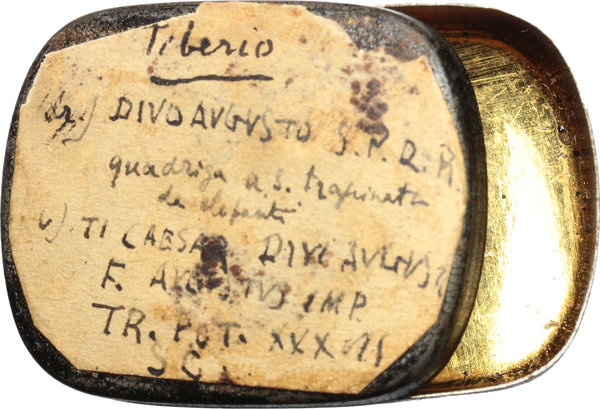 Tiberio
dr.) DIVO AVGVSTO S.P.Q.R.
quadriga a s. trascinata
da elefanti
v). TI CAESAR DIVI AVGVST
F. AVGVSTVS IMP.
TR. POT. XXXVII
S C